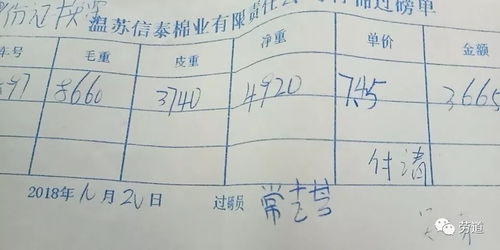 温苏信泰棉业有限责任公 棉过磅单
车号 毛重 皮重 净重 单价 金额
97 8660 3740 4920 7.45 3665
付清
2018年 月 20日 过磅员
劳道